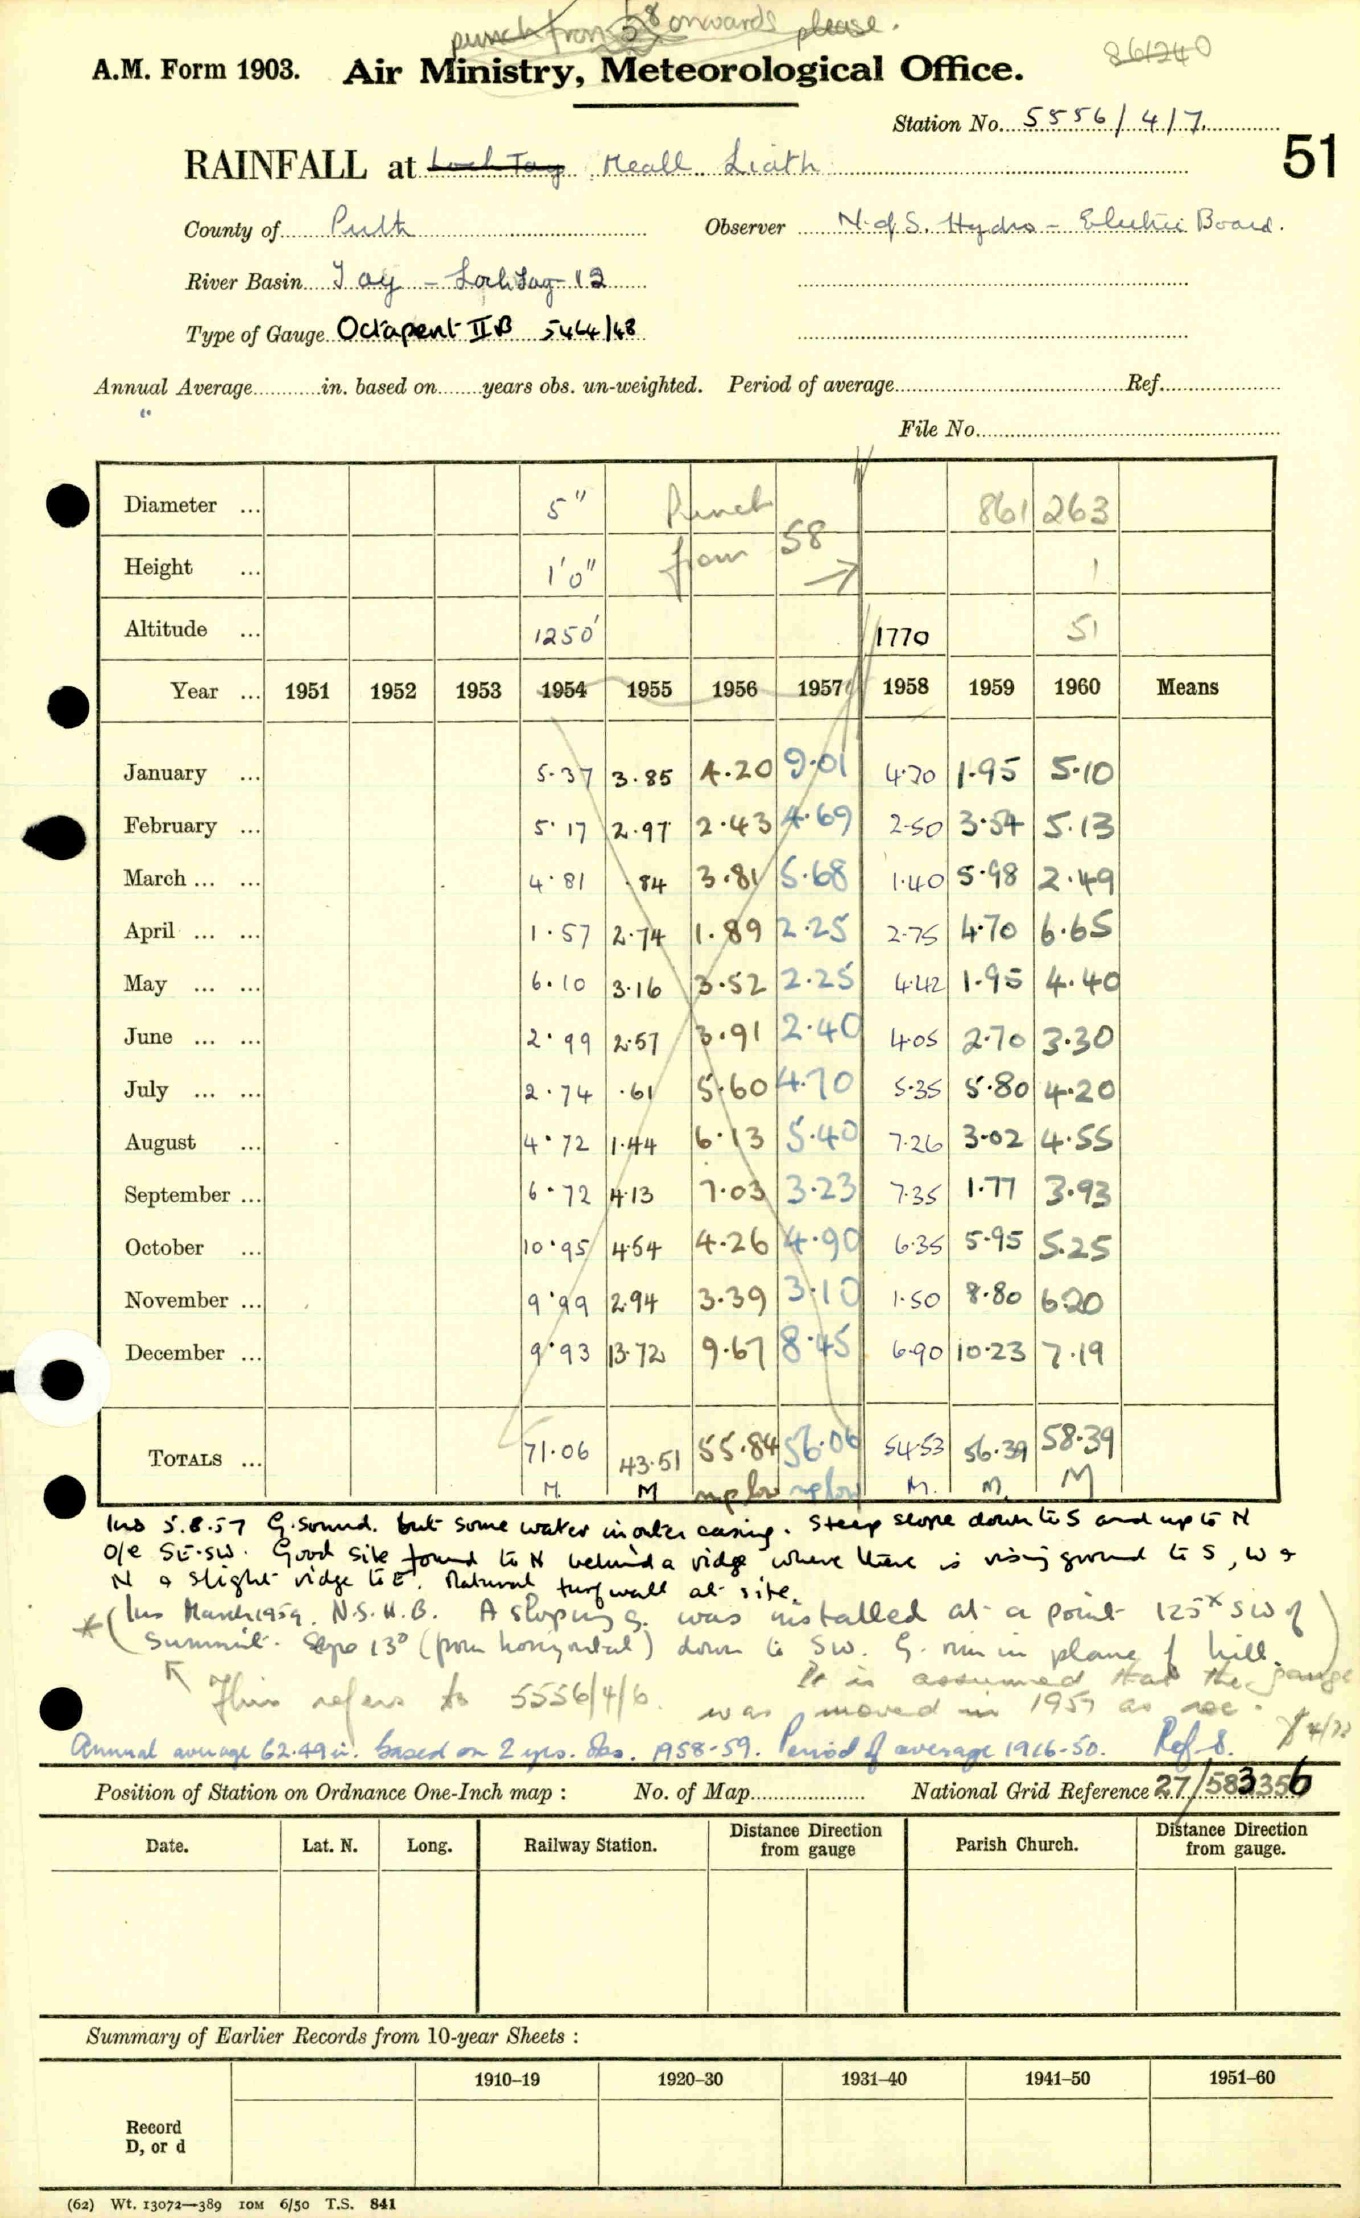 punch from 58 onwards please.
861240
A.M. Form 1903. Air Ministry, Meteorological Office.
Station No. 5556/4/7
51
RAINFALL at Loch Tay Meall Liath
County of Perth Observer N. of S. Hydro-Electric Board.
River Basin Tay - Loch Tay - 12
Type of Gauge Octapent II B 5464/48
Annual Average............in. based on........years obs. un-weighted. Period of average........ Ref........
"
File No.
Diameter ... 5" Punch 861 263
Height ... 1'0" from 58 → 1
Altitude ... 1250' 1770 51
Year ... 1951 1952 1953 1954 1955 1956 1957 1958 1959 1960 Means
January ... 5.37 3.85 4.20 9.01 4.70 1.95 5.10
February ... 5.17 2.97 2.43 4.69 2.50 3.54 5.13
March ... ... 4.81 .84 3.81 5.68 1.40 5.98 2.49
April ... ... 1.57 2.74 1.89 2.25 2.75 4.70 6.65
May ... ... 6.10 3.16 3.52 2.25 4.42 1.95 4.40
June ... ... 2.99 2.57 3.91 2.40 4.05 2.70 3.30
July ... ... 2.74 .61 5.60 4.70 5.35 5.80 4.20
August ... 4.72 1.44 6.13 5.40 7.26 3.02 4.55
September ... 6.72 4.13 7.03 3.23 7.35 1.77 3.93
October ... 10.95 4.54 4.26 4.90 6.35 5.95 5.25
November ... 9.99 2.94 3.39 3.10 1.50 8.80 6.20
December ... 9.93 13.72 9.67 8.45 6.90 10.23 7.19
TOTALS ... 71.06 43.51 55.84 56.06 54.53 56.39 58.39
M. M M. M. M
Ins 5.8.57 G. sound. but some water in outer casing. Steep slope down to S and up to N
O/e SE-SW. Good site found to N behind a ridge where there is rising ground to S, W &
N & slight ridge to E. Natural turf wall at site.
* (Ins March 1959. N.S.H.B. A sloping g. was installed at a point 125x SW of
summit. Slope 13° (from horizontal) down to SW. G. rim in plane of hill.)
↖ This refers to 5556/4/6. It is assumed that the gauge
was moved in 1957 as rec.
4/73
Annual average 62.49 in. based on 2 yrs. obs. 1958-59. Period of average 1916-50. Ref 8.
Position of Station on Ordnance One-Inch map : No. of Map.......... National Grid Reference 27/583356
Date. Lat. N. Long. Railway Station. Distance Direction from gauge Parish Church. Distance Direction from gauge.
Summary of Earlier Records from 10-year Sheets :
1910–19 1920–30 1931–40 1941–50 1951–60
Record
D, or d
(62) Wt. 13072—389 10M 6/50 T.S. 841